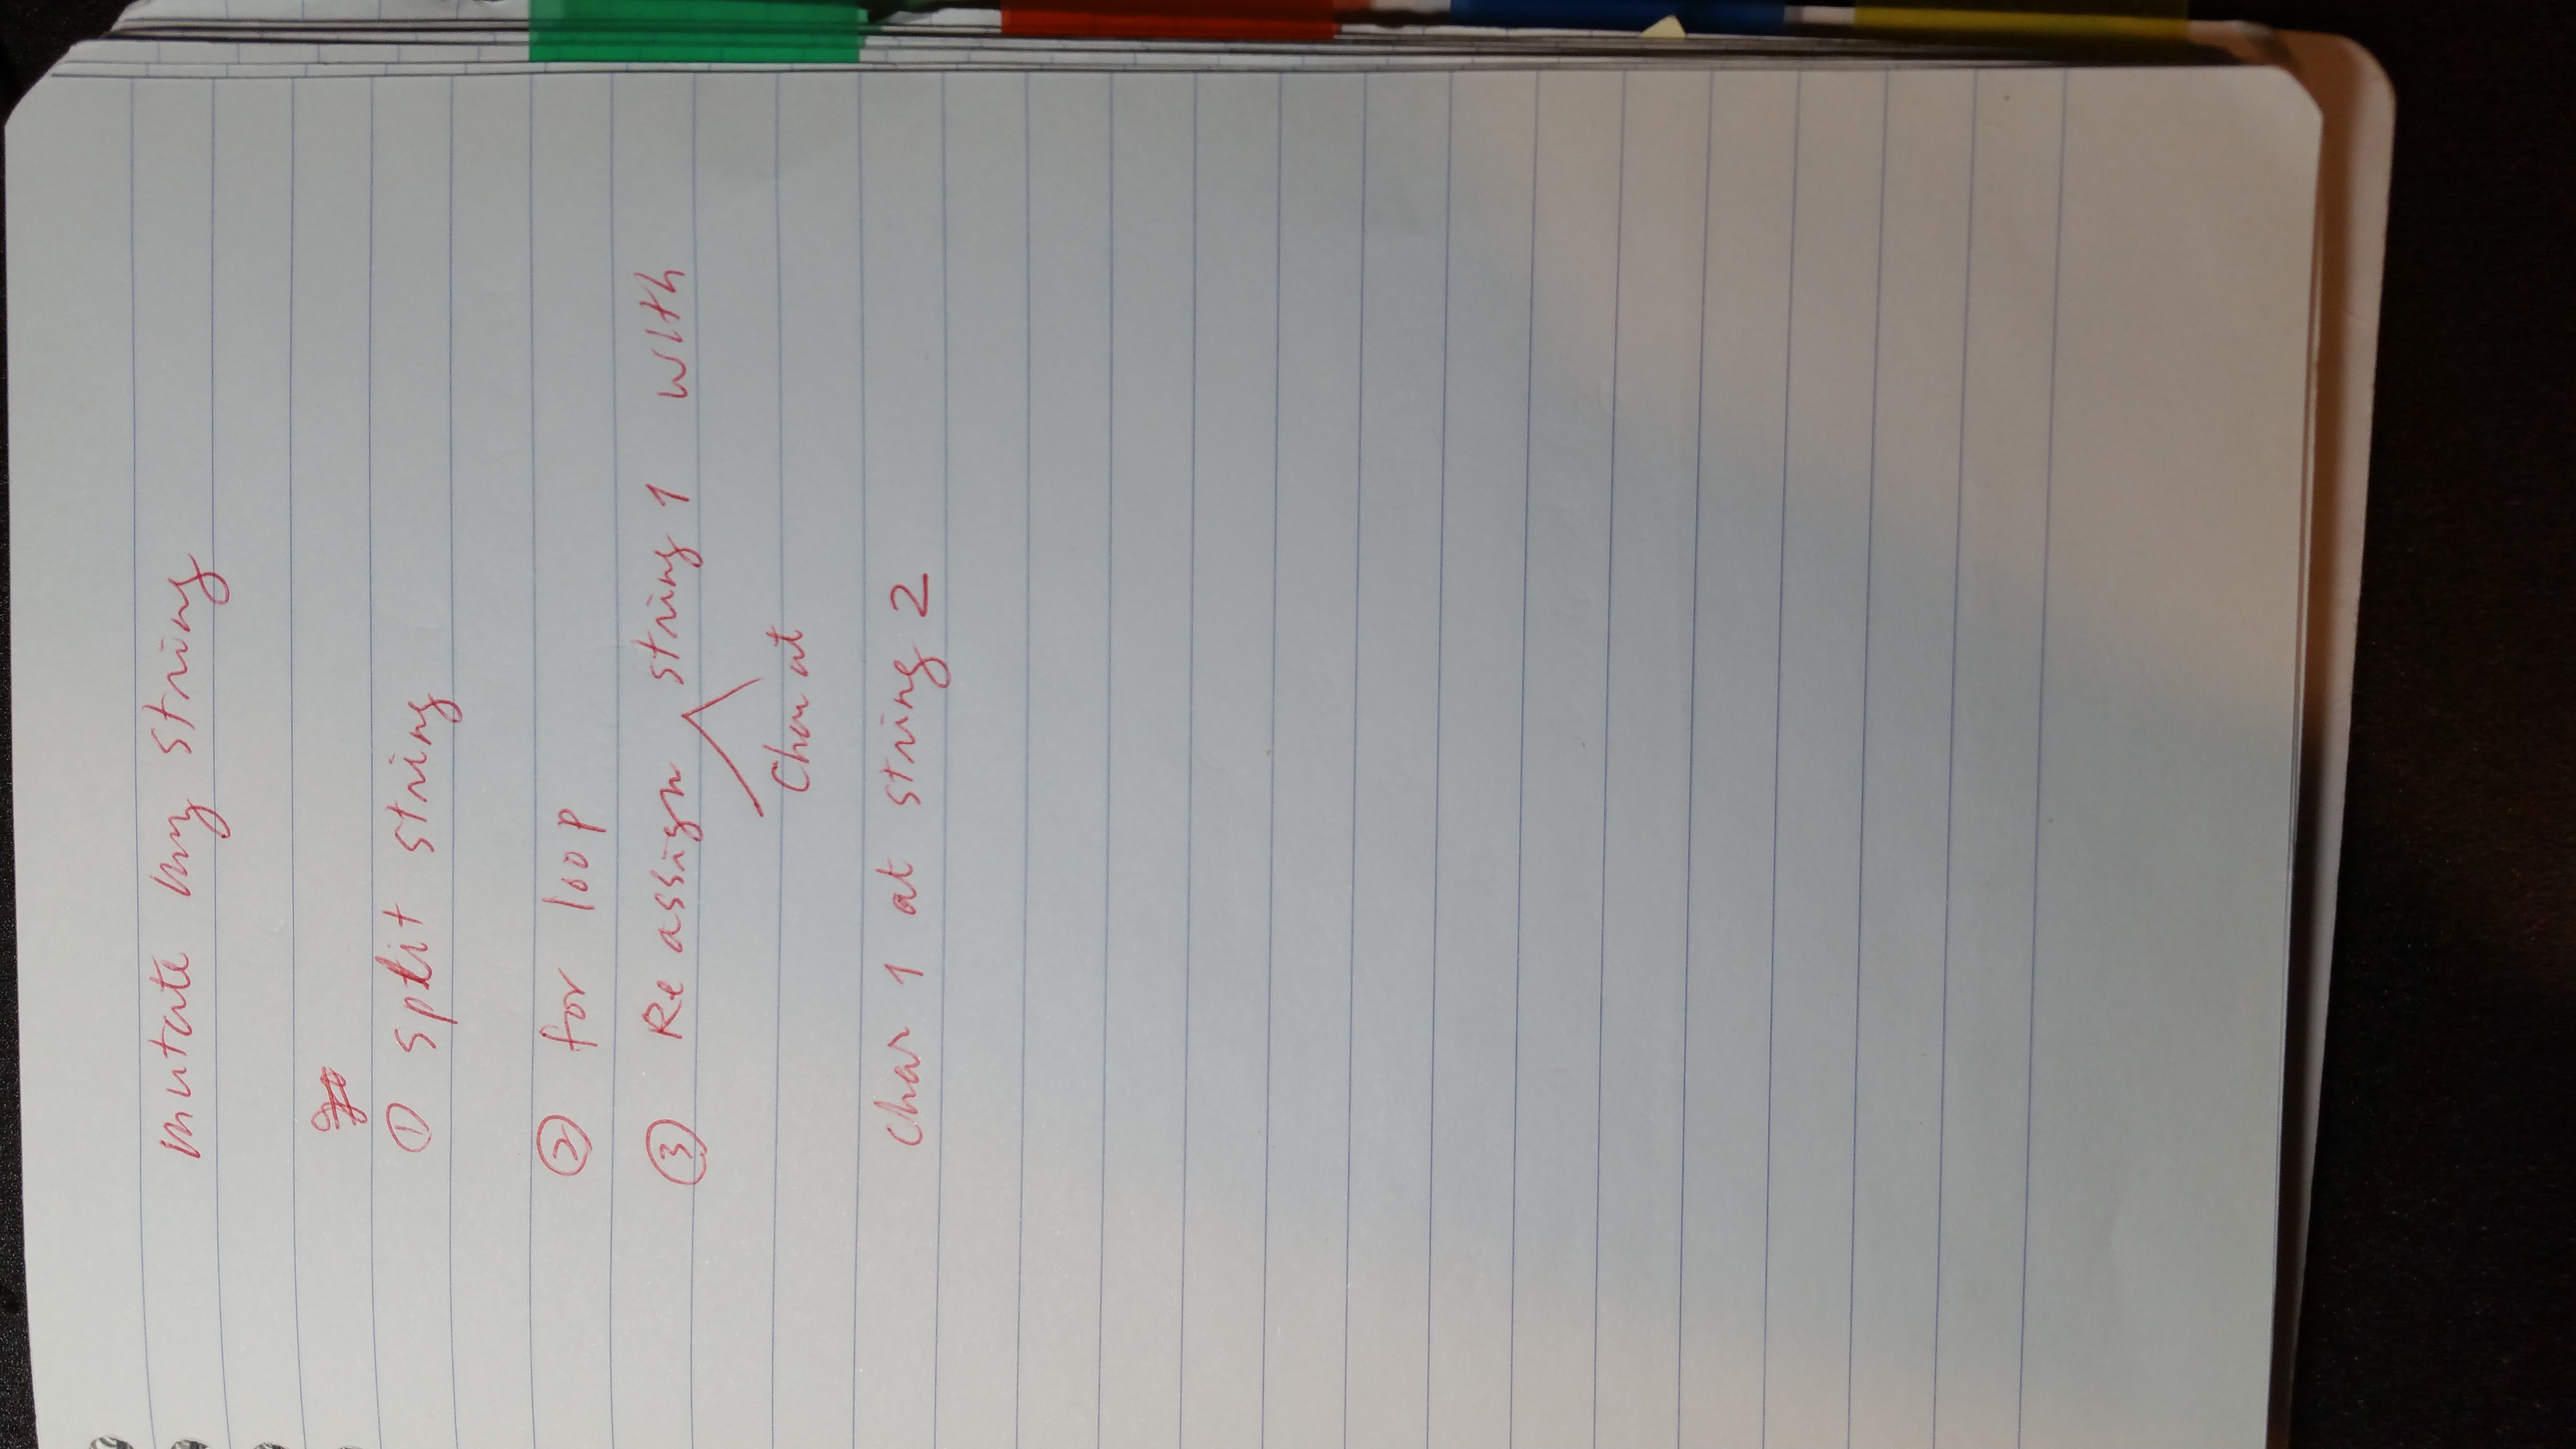 mutate my string
① split string
② for loop
③ Reassign string 1 with
Char at
char 1 at string 2